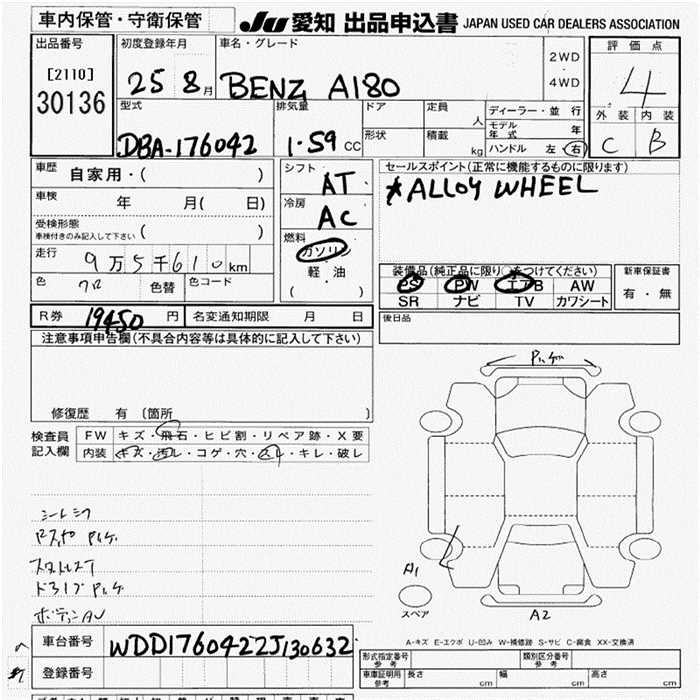 車内保管・守衛保管
JU 愛知 出品申込書 JAPAN USED CAR DEALERS ASSOCIATION
出品番号
[2110]
30136
初度登録年月
25 8月
車名・グレード
BENZ A180
2WD
・
4WD
評価点
4
外装 内装
C B
型式
DBA-176042
排気量
1.59 cc
ドア
定員 人
形状
積載 kg
ディーラー・並行
モデル年式 年
ハンドル 左・右
車歴
自家用・( )
車検 年 月( 日)
受検形態
車検付きのみ記入して下さい ( )
走行
9万5千610km
色 クロ 色替 色コード
シフト
AT
冷房
AC
燃料
ガソリン
軽・油
( )
セールスポイント(正常に機能するものに限ります)
*ALLOY WHEEL
装備品(純正品に限り○をつけてください)
PS PW エアB AW
SR ナビ TV カワシート
新車保証書
有・無
R券 19450 円 名変通知期限 月 日
後日品
注意事項申告欄(不具合内容等は具体的に記入して下さい)
修復歴 有 〔箇所 〕
検査員記入欄
FW キズ・飛石・ヒビ割・リペア跡・X要
内装 キズ・汚レ・コゲ・穴・スレ・キレ・破レ
A1
スペア
A2
A-キズ E-エクボ U-凹み W-補修跡 S-サビ C-腐食 XX-交換済
車台番号 WDD1760422J130632
登録番号
型式指定番号 参考
類別区分番号 参考
車庫証明用 参考 長さ cm 幅 cm 高さ cm